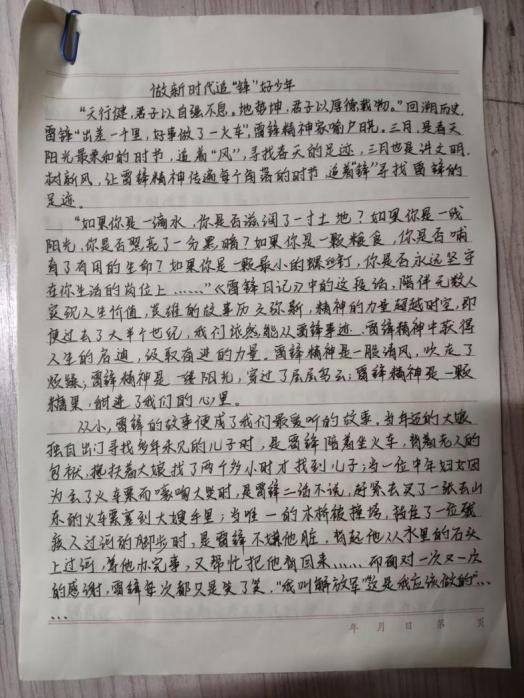 做新时代追“锋”好少年
“天行健，君子以自强不息。地势坤，君子以厚德载物。”回溯历史，
雷锋“出差一千里，好事做了一火车”，雷锋精神家喻户晓。三月，是春天
阳光最柔和的时节，追着“风”，寻找春天的足迹，三月也是讲文明，
树新风，让雷锋精神传遍每个角落的时节，追着“锋”寻找雷锋的
足迹。
“如果你是一滴水，你是否滋润了一寸土地？如果你是一线
阳光，你是否照亮了一分黑暗？如果你是一颗粮食，你是否哺
育了有用的生命？如果你是一颗最小的螺丝钉，你是否永远坚守
在你生活的岗位上……”《雷锋日记》中的这段话，陪伴无数人
实现人生价值，英雄的故事历久弥新，精神的力量超越时空，即
便过去了大半个世纪，我们依然能从雷锋事迹、雷锋精神中获得
人生的启迪，汲取奋进的力量。雷锋精神是一股清风，吹走了
烦躁；雷锋精神是一缕阳光，穿过了层层乌云；雷锋精神是一颗
糖果，甜进了我们的心里。
从小，雷锋的故事便成了我们最爱听的故事。当年迈的大娘
独自出门寻找多年未见的儿子时，是雷锋陪着坐火车，背着老人的
包袱，搀扶着大娘找了两个多小时才找到儿子；当一位中年妇女因
为丢了火车票而嚎啕大哭时，是雷锋二话不说，赶紧去买了一张去山
东的火车票塞到大嫂手里；当唯一的木桥被撞塌，挡住了一位残
疾人过河的脚步时，是雷锋不嫌他脏，背起他从水里的石头
上过河，等他办完事，又帮忙把他背回来……而面对一次又一次
的感谢，雷锋每次都只是笑了笑，“我叫解放军”“这是我应该做的”…
…
年 月 日 第 页